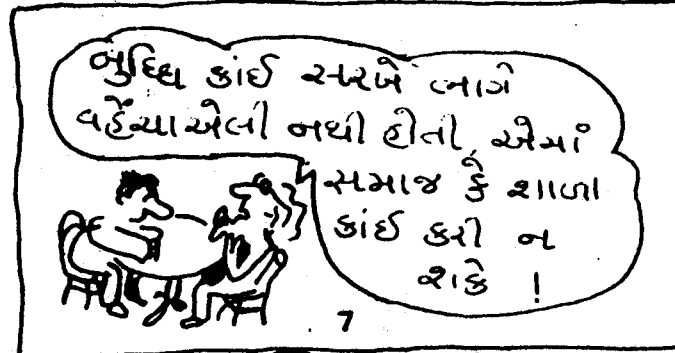 બુદ્ધિ કાંઈ સરખે ભાગે
વહેંચાએલી નથી હોતી, એમાં
સમાજ કે શાળા
કાંઈ કરી ન
શકે !
7